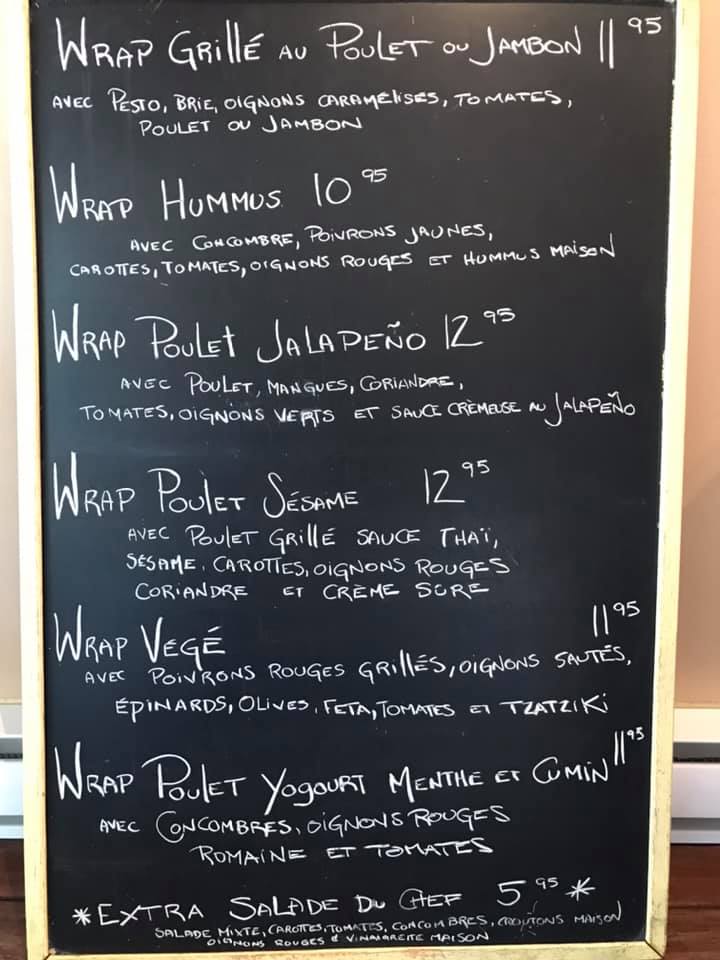 Wrap Grillé au Poulet ou Jambon 11 95
avec Pesto, Brie, oignons caramélisés, tomates,
Poulet ou Jambon
Wrap Hummus 10 95
avec Concombre, Poivrons jaunes,
carottes, tomates, oignons rouges et hummus maison
Wrap Poulet Jalapeño 12 95
avec Poulet, mangues, Coriandre,
tomates, oignons verts et sauce crèmeuse au Jalapeño
Wrap Poulet Sésame 12 95
avec Poulet Grillé sauce Thaï,
sésame, carottes, oignons rouges
Coriandre et crème sure
Wrap Végé 11 95
avec Poivrons rouges grillés, oignons sautés,
épinards, Olives, Feta, Tomates et tzatziki
Wrap Poulet Yogourt Menthe et Cumin 11 95
avec Concombres, oignons rouges
romaine et tomates
*Extra Salade du Chef 5 95 *
salade mixte, carottes, tomates, concombres, croûtons maison
oignons rouges & vinaigrette maison